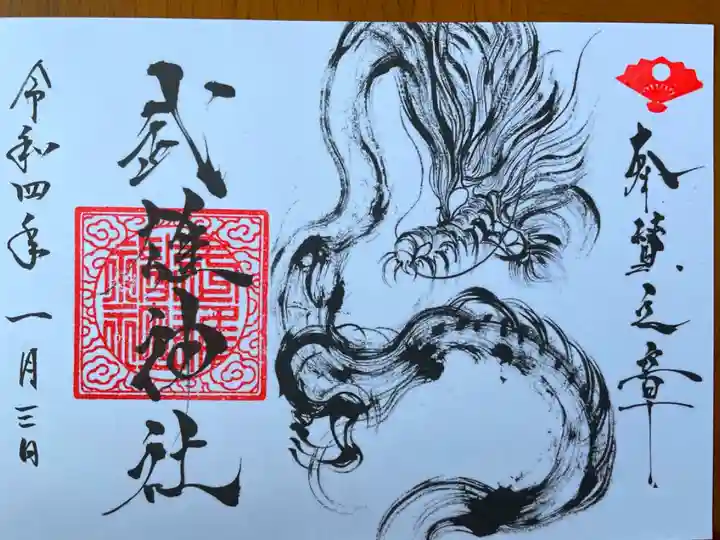 奉賛之章
武護神社
令和四年一月三日